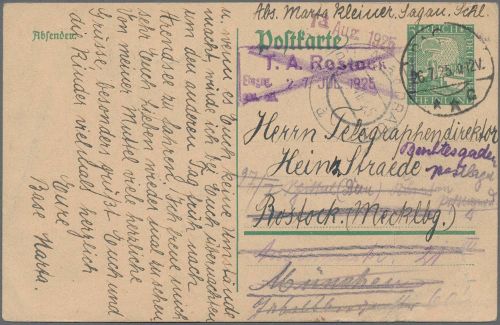 Abs. Marta Kleiner, Sagan, Schl.
Absender:
Postkarte
AUG. 1925
T. A. Rostock
Eingeg.
27. JULI. 1925
26.7.25. 9-12V.
DEUTSCHES REICH
Herrn Telegraphendirektor
Heinz Straede
Berchtesgaden
postlagernd
Rostock. (Mecklbg.)
München
u. wenn es Euch keine Umstände
macht, würde ich bei Euch übernachten
um den anderen Tag früh nach
Ahrendsee zu fahren. Ich freue mich
sehr Euch Lieben wieder mal zu sehen.
Von meiner Mutsel viele herzliche
Grüsse, besonders grüsst Euch und
die Kinder vielmals herzlich
Eure
Base Marta.